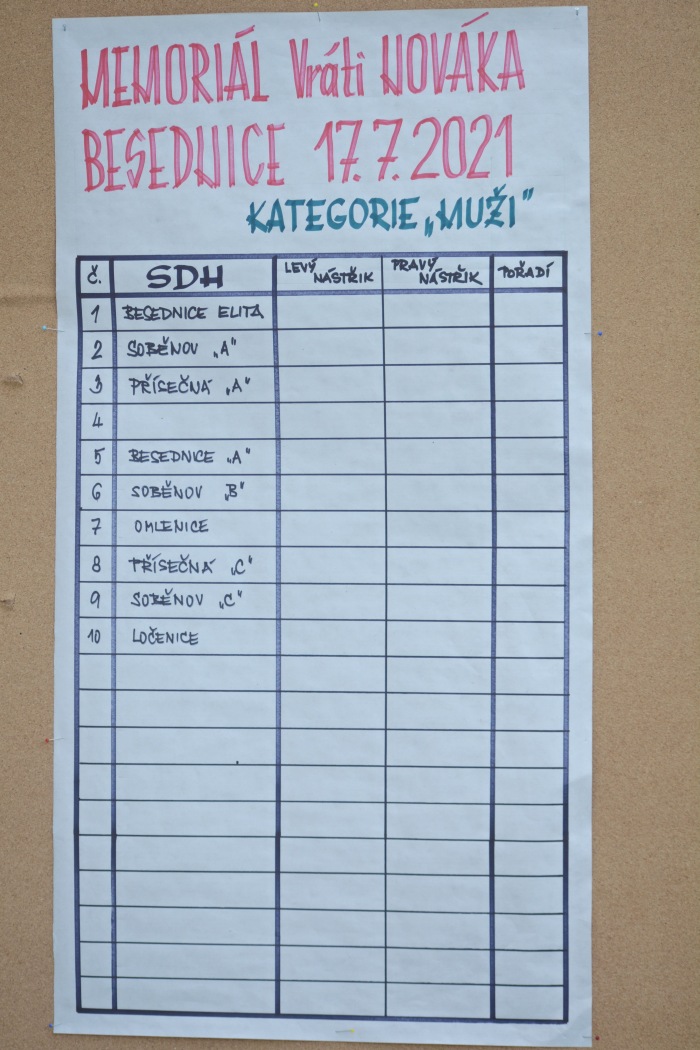 MEMORIÁL Vráti NOVÁKA
BESEDNICE 17.7.2021
KATEGORIE „MUŽI"
Č. SDH LEVÝ NÁSTŘIK PRAVÝ NÁSTŘIK POŘADÍ
1 BESEDNICE ELITA
2 SOBĚNOV „A"
3 PŘÍSEČNÁ „A"
4
5 BESEDNICE „A"
6 SOBĚNOV „B"
7 OMLENICE
8 PŘÍSEČNÁ „C"
9 SOBĚNOV „C"
10 LOČENICE